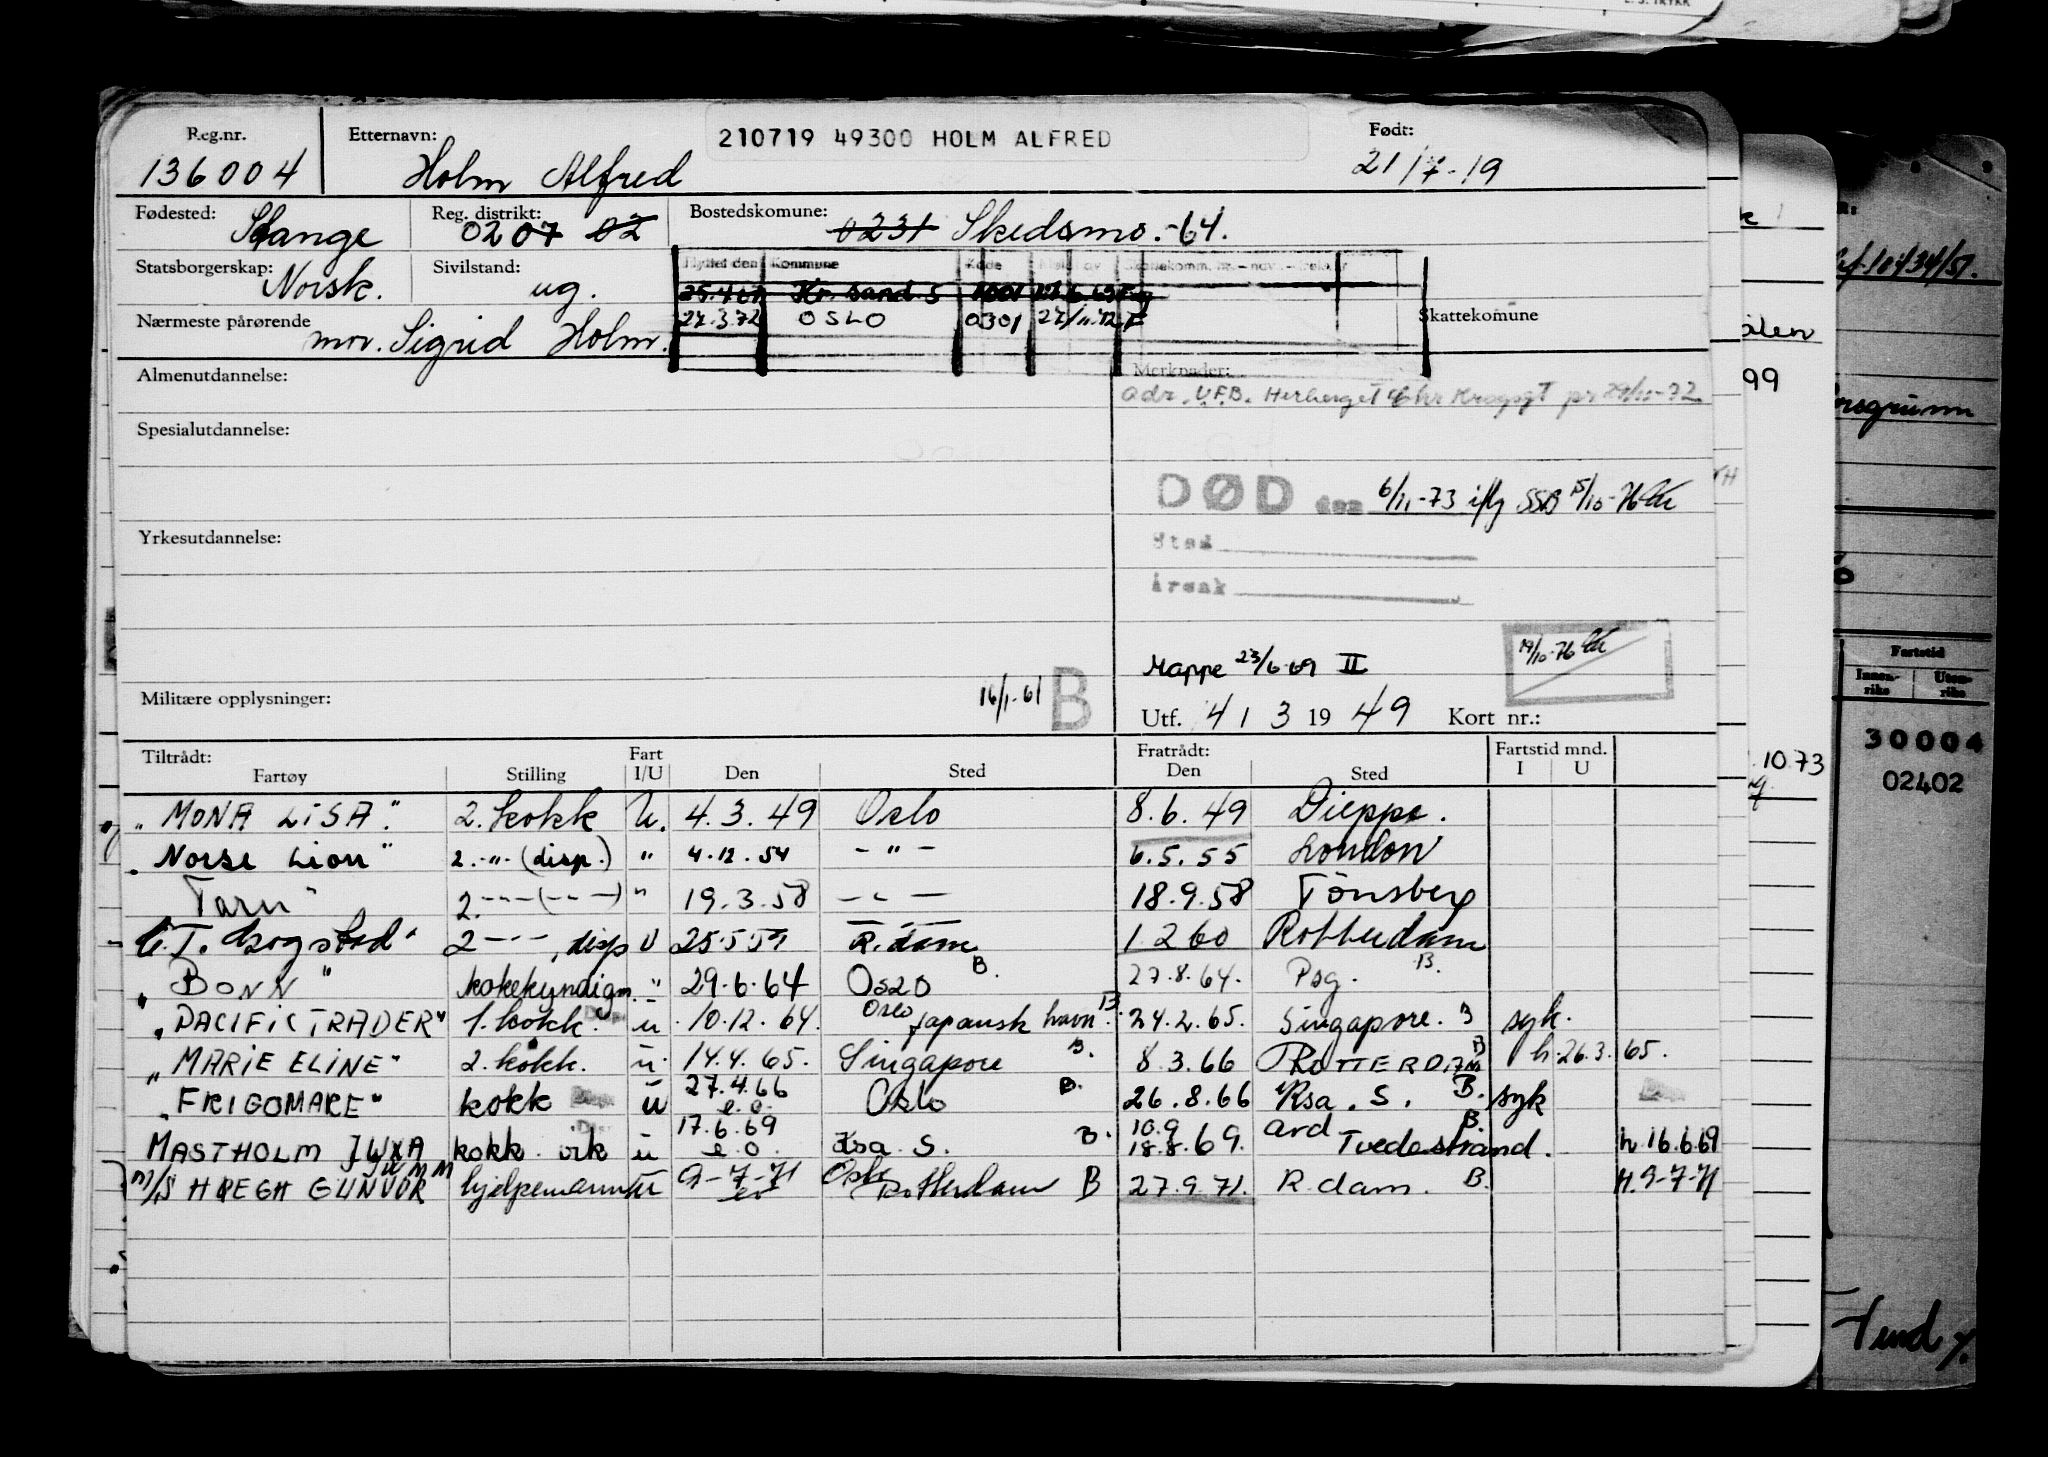 Reg.nr. Etternavn: 210719 49300 HOLM ALFRED Født:
136004 Holm Alfred 21/7-19
Fødested: Stange Reg. distrikt: 0207 02 Bostedskomune: 0231 Skedsmo.-64.
Statsborgerskap: Norsk. Sivilstand: ug. Flyttet den Kommune Kode
25.4.67 Kr. sand. S 1001
Nærmeste pårørende mor. Sigrid Holm. 27.3.72 OSLO 0301 27/11.72 Skattekomune
Almenutdannelse: Merknader:
adr. U.F.B. Herberget Chr Krogsgt
Spesialutdannelse:
DØD den 6/11-73 iflg SSB 15/10-76
Yrkesutdannelse: Sted
Årsak
Mappe 23/6-69 II 19/10-76
Militære opplysninger: 16/1-61 B Utf. 4 / 3 1949 Kort nr.:
Tiltrådt: Fart Fratrådt: Fartstid mnd.
Fartøy Stilling I/U Den Sted Den Sted I U
"MONA LISA". 2. kokk U. 4.3.49 Oslo 8.6.49 Dieppe.
"Norse Lion" 2. -"- (disp.) " 4.12.54 - " - 6.5.55 London
Tarn" 2. -"- (-"-) " 19.3.58 - " - 18.9.58 Tönsberg
"C.T. Gogstad" 2 -"-, disp U 25.5.59 R.dam 1 2 60 Rotterdam
"BONN" kokekyndigm. " 29.6.64 OSLO B. 27.8.64. Psg. B.
"PACIFIC TRADER" 1. kokk. u 10.12.64. Oslo Japansk havn B. 24.2.65. Singapore. B syk.
"MARIE ELINE" 2. kokk. u 14.4.65. Singapore B. 8.3.66 ROTTERDAM B h. 26.3.65.
"FRIGOMARE" kokk u 27.4.66 e.o. Oslo B. 26.8.66 Krsa. S. B. syk
MASTHOLM kokk. u 17.6.69 e.o. Krsa S. B. 10.9 18.8.69. ard Tvedestrand. B. h. 16.6.69
M/S HØEGH GUNVOR hjelpemann u 9-7-71 eo Oslo Rotterdam B 27.9.71. R.dam. B. H. 9-7-71
Porsgrunn
Fartstid
Innen-riks Uten-riks
.10.73
30004
02402